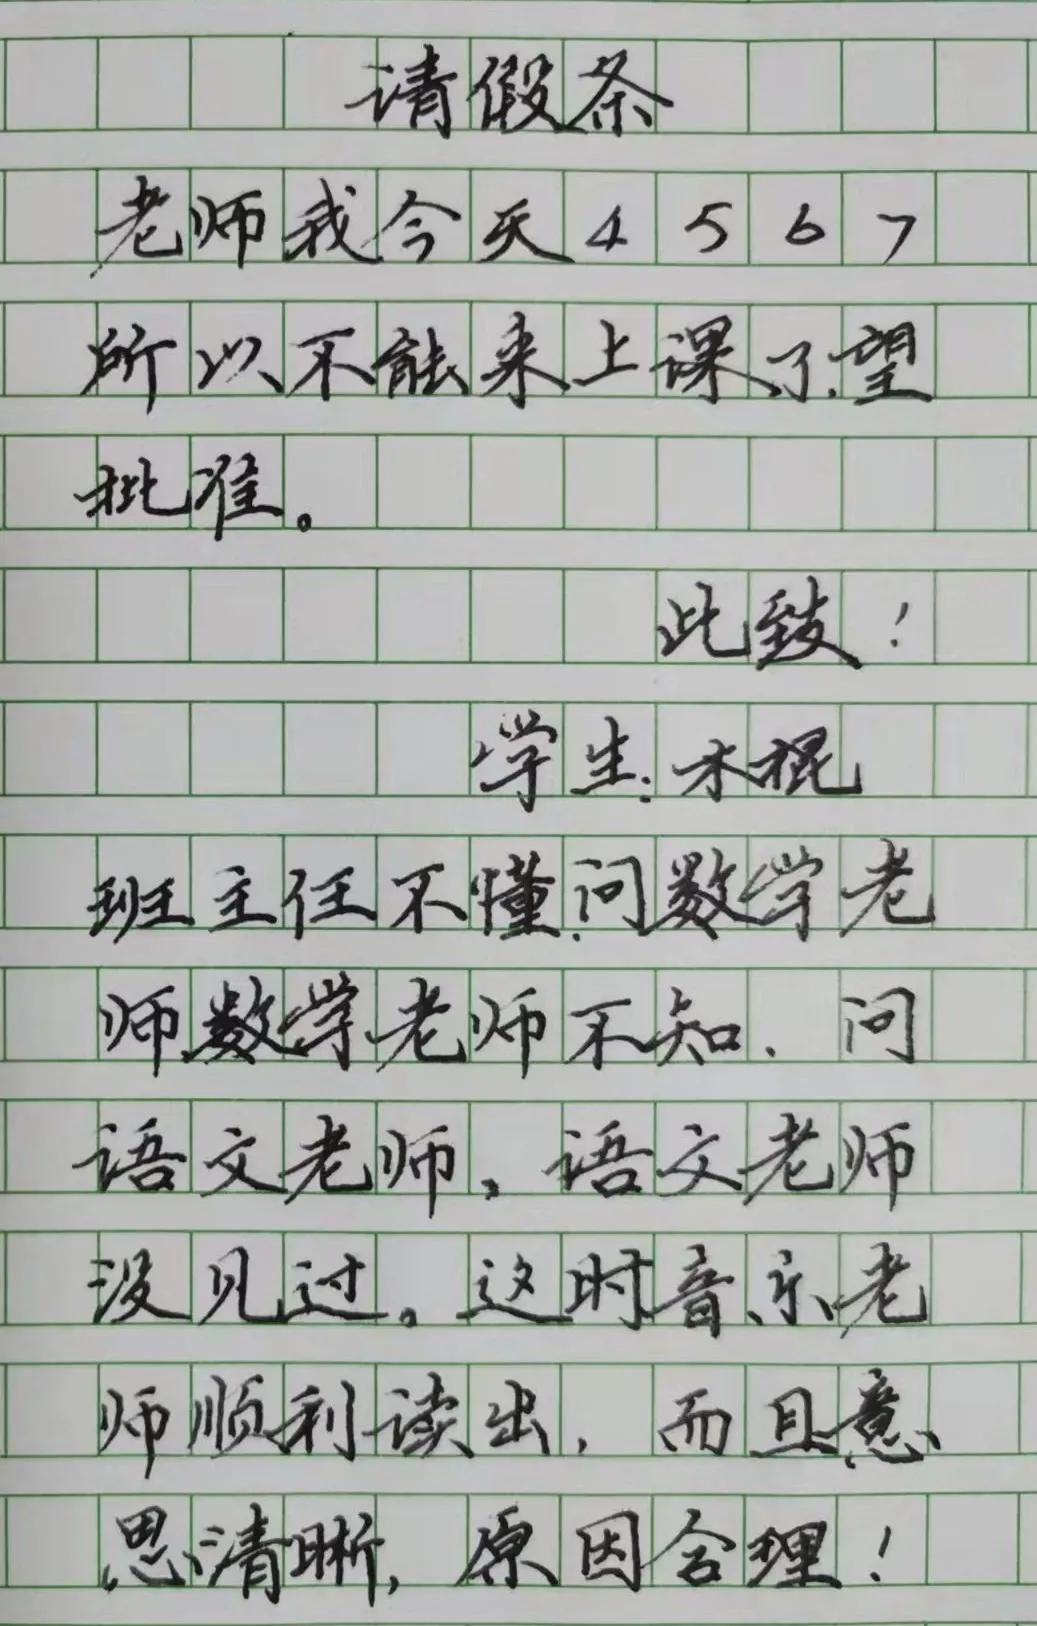 请假条
老师我今天4567
所以不能来上课了.望
批准。
此致！
学生:木棍
班主任不懂.问数学老
师.数学老师不知.问
语文老师。语文老师
没见过。这时音乐老
师顺利读出,而且意
思清晰,原因合理！